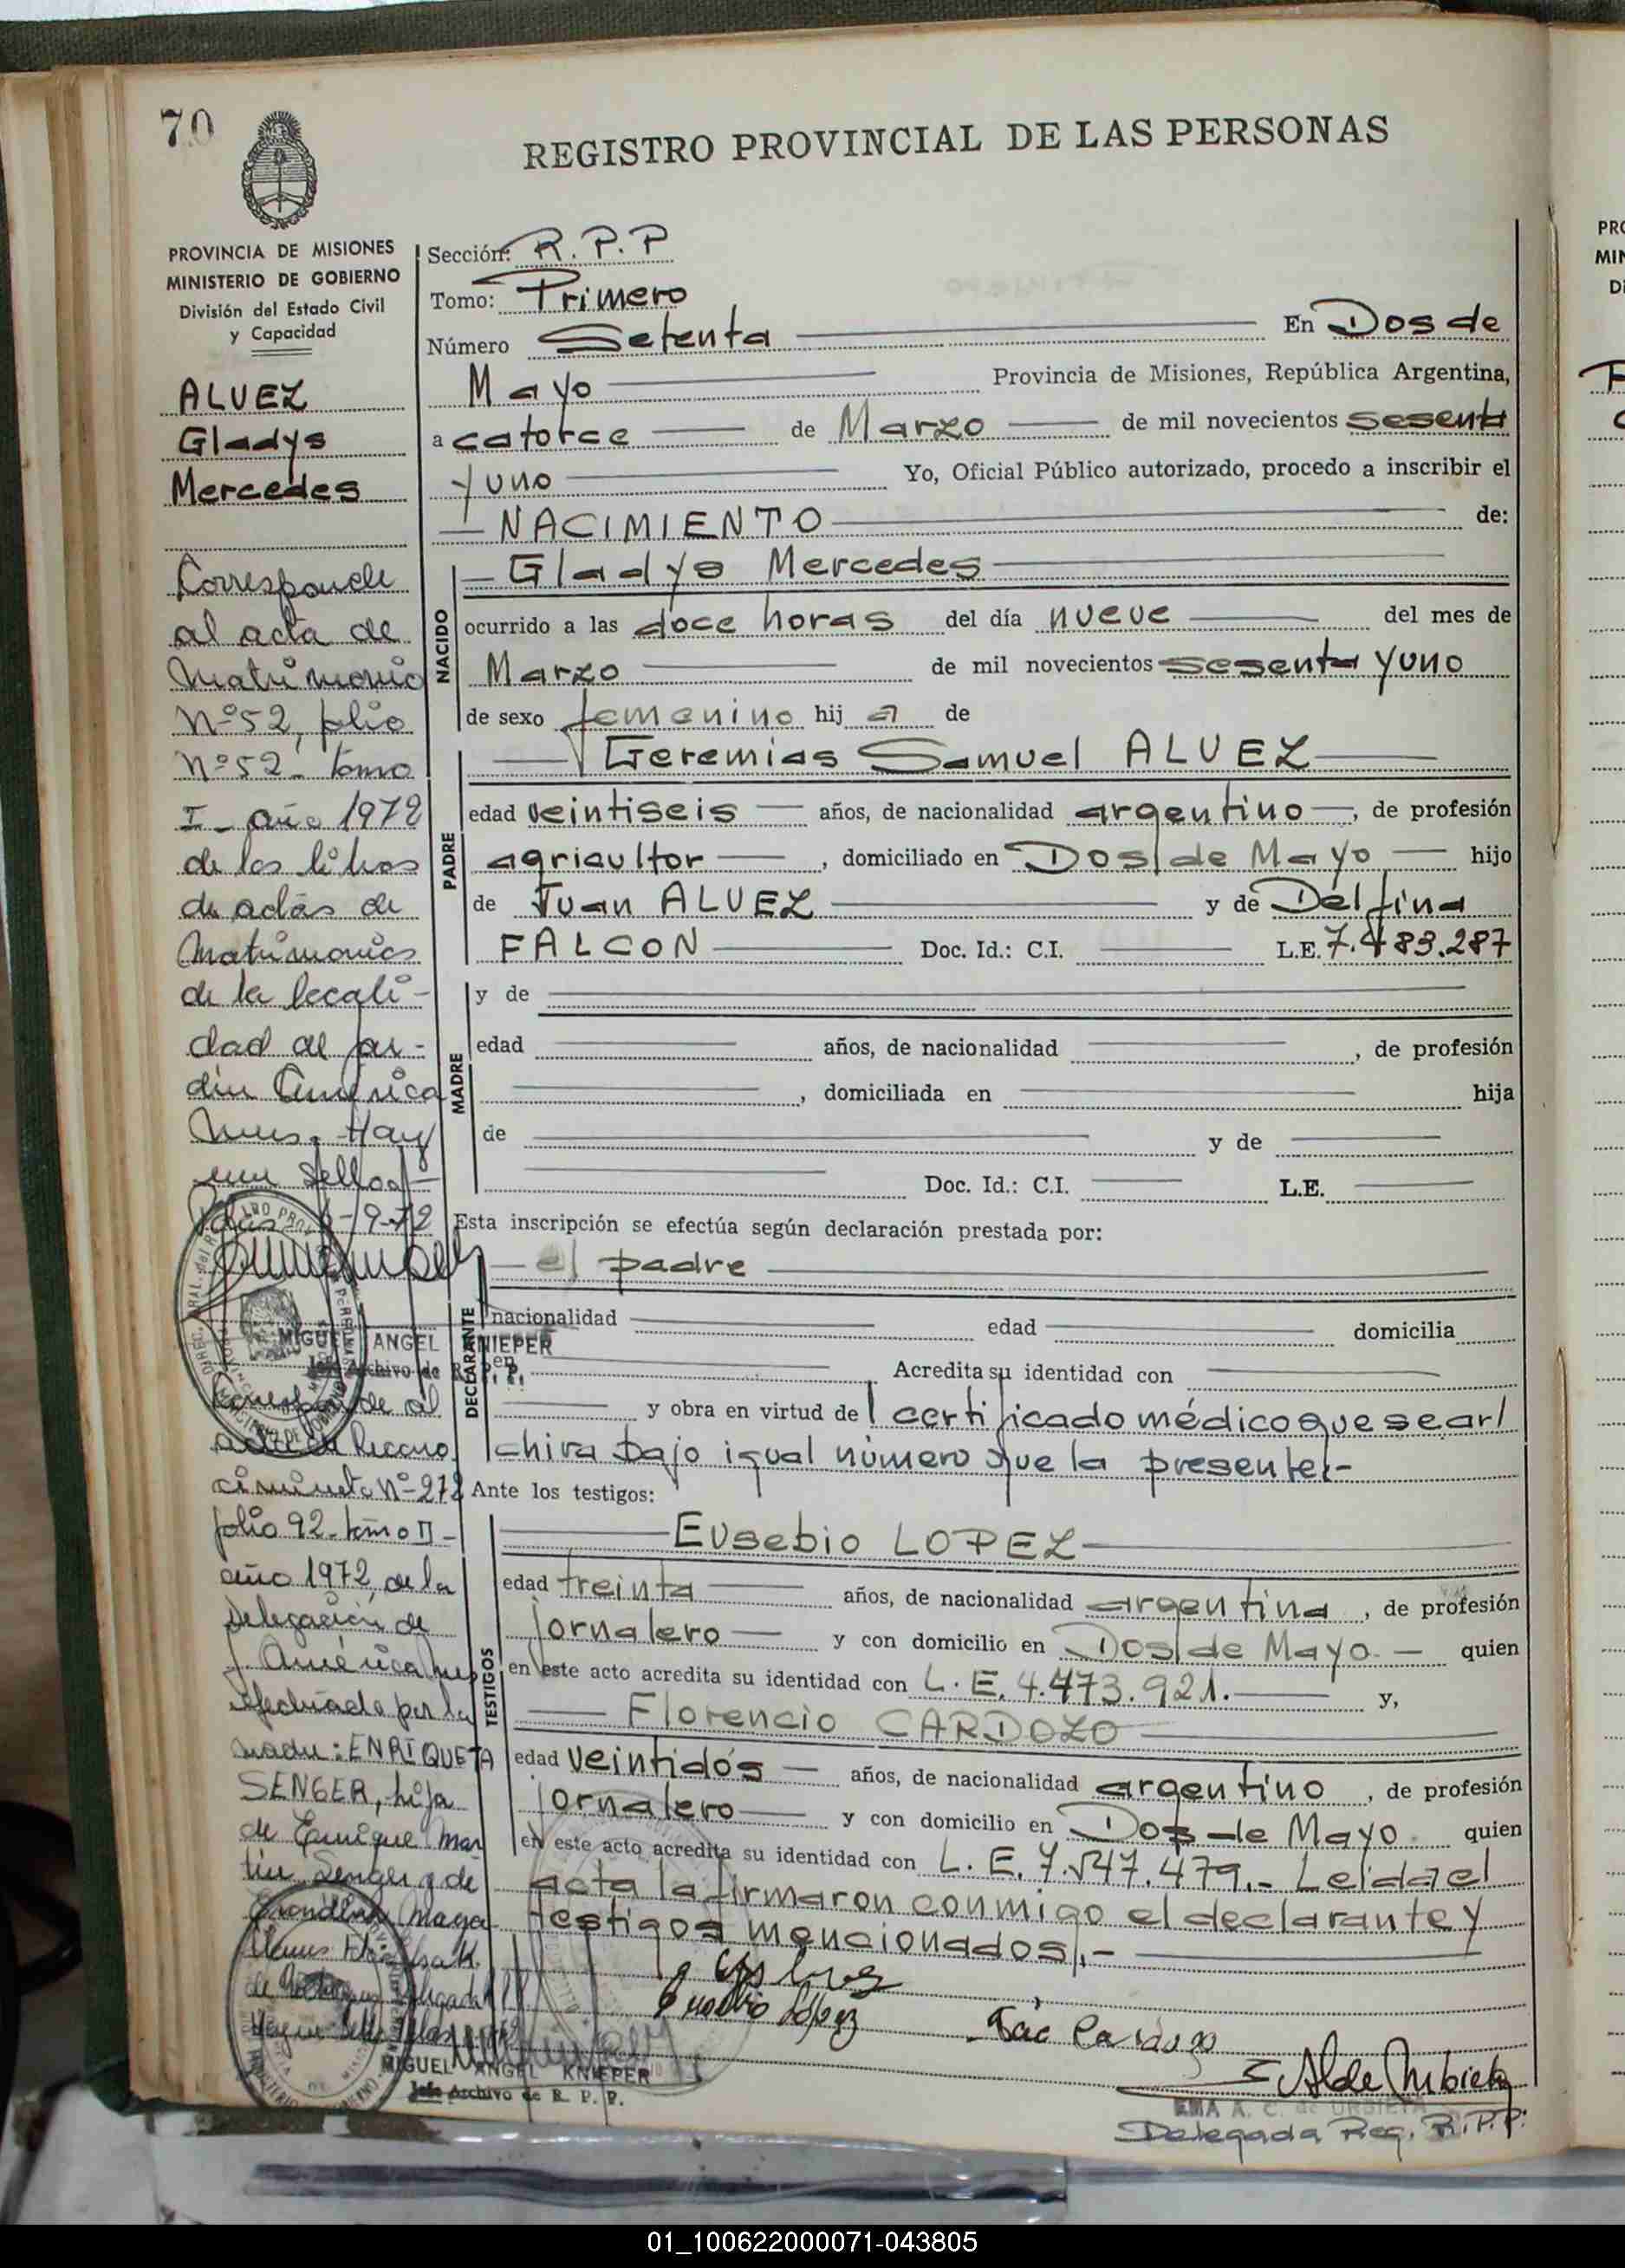 70
REGISTRO PROVINCIAL DE LAS PERSONAS
PROVINCIA DE MISIONES
MINISTERIO DE GOBIERNO
División del Estado Civil
y Capacidad
ALVEZ
Gladys
Mercedes
Corresponde
al acta de
Matrimonio
Nº 52, folio
Nº 52 - tomo
I - año 1972
de los libros
de actas de
Matrimonios
de la locali-
dad de Jar-
din América
Mnes. Hay
un sello
6-9-72
MIGUEL ANGEL KNIEPER
Jefe Archivo de R. P. P.
Corresponde al
acta de Recono
cimiento Nº 272
folio 92 - tomo II -
año 1972, de la
Delegación de
J. América
efectuado por la
madre: ENRIQUETA
SENGER, hija
de Enrique Mar
tin Senger y de
MIGUEL ANGEL KNIEPER
Jefe Archivo de R. P. P.
Sección: R. P. P
Tomo: Primero
Número Setenta En Dos de
Mayo Provincia de Misiones, República Argentina,
a catorce de Marzo de mil novecientos sesenta
y uno Yo, Oficial Público autorizado, procedo a inscribir el
NACIMIENTO de:
NACIDO
Gladys Mercedes
ocurrido a las doce horas del día nueve del mes de
Marzo de mil novecientos sesenta y uno
de sexo femenino hij a de
PADRE
Geremias Samuel ALVEZ
edad veintiseis años, de nacionalidad argentino, de profesión
agricultor, domiciliado en Dos de Mayo hijo
de Juan ALVEZ y de Delfina
FALCON Doc. Id.: C.I. L.E. 7.483.287
MADRE
y de
edad años, de nacionalidad , de profesión
, domiciliada en hija
de y de
Doc. Id.: C.I. L.E.
Esta inscripción se efectúa según declaración prestada por:
DECLARANTE
el padre
nacionalidad edad domicilia
en Acredita su identidad con
y obra en virtud de l certificado médico que se ar/
chiva bajo igual número que la presente.-
Ante los testigos:
TESTIGOS
Eusebio LOPEZ
edad treinta años, de nacionalidad argentina, de profesión
jornalero y con domicilio en Dos de Mayo.- quien
en este acto acredita su identidad con L. E. 4.473.921.- y,
Florencio CARDOZO
edad veintidós años, de nacionalidad argentino, de profesión
jornalero y con domicilio en Dos de Mayo quien
en este acto acredita su identidad con L. E. 7.547.479.- Leida el
acta la firmaron conmigo el declarante y
testigos mencionados.-
Eusebio López
EMA A. C. de URBIETA
Delegada Reg. R.P.P.
01_100622000071-043805